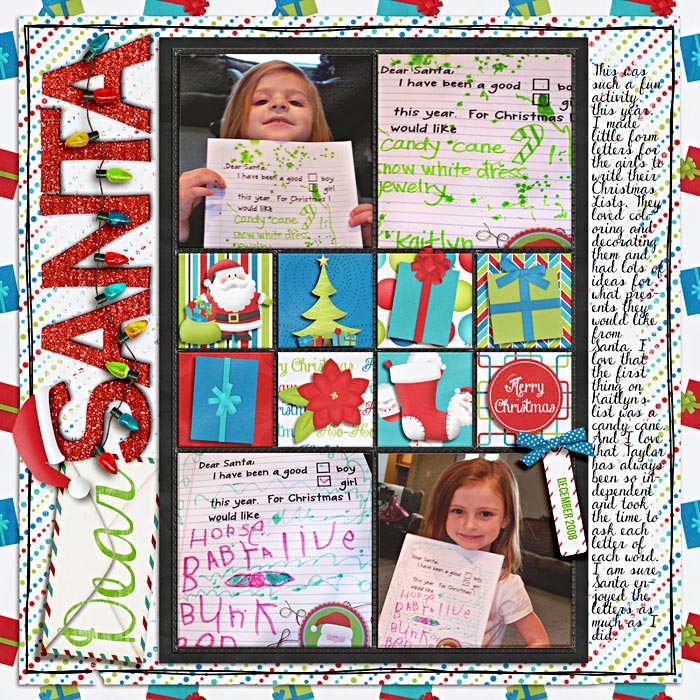 Dear SANTA
Dear Santa,
I have been a good boy
girl
this year. For Christmas I
would like
Candy cane
snow white dress
jewelry
Dear Santa,
I have been a good bo
gi
this year. For Christmas
would like
Candy cane
snow white dress
jewelry
Kaitlyn
Merry Christmas
Ho-Ho
Merry
Christmas
Dear Santa,
I have been a good boy
girl
this year. For Christmas I
would like
HORSE,
BABY ALIVE
BUNK
BED
Dear Santa,
I have been a good
this year. For Christmas I
would like
HORSE
BABY ALIVE
BUNK
BED
DECEMBER 2008
This was
such a fun
activity
this year.
I made
little form
letters for
the girls to
write their
Christmas
Lists. They
loved col-
oring and
decorating
them and
had lots of
ideas for
what pres-
ents they
would like
from
Santa. I
love that
the first
thing on
Kaitlyn's
list was a
candy cane.
And I love
that Taylor
has always
been so in-
dependent
and took
the time to
ask each
letter of
each word.
I am sure
Santa en-
joyed the
letters as
much as I
did.